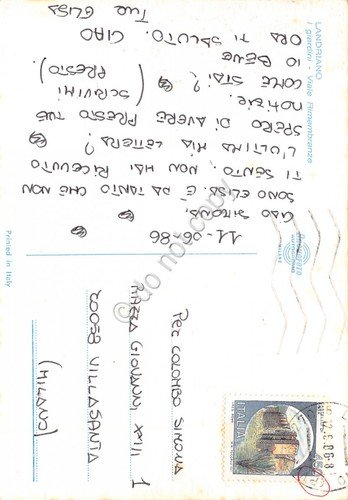 LANDRIANO
I giardini - Viale Rimembranze
11-06-86
CIAO SIMONA,
SONO ELISA. È DA TANTO CHE NON
TI SENTO. NON HAI RICEVUTO
L'ULTIMA MIA LETTERA?
SPERO DI AVERE PRESTO TUE
NOTIZIE. (SCRIVIMI PRESTO)
COME STAI?
IO BENE
ORA TI SALUTO. CIAO
TUA ELISA
Printed in Italy
PER COLOMBO SIMONA
PIAZZA GIOVANNI XXIII, 1
20058 VILLASANTA
(MILANO)
ITALIA
do not copy